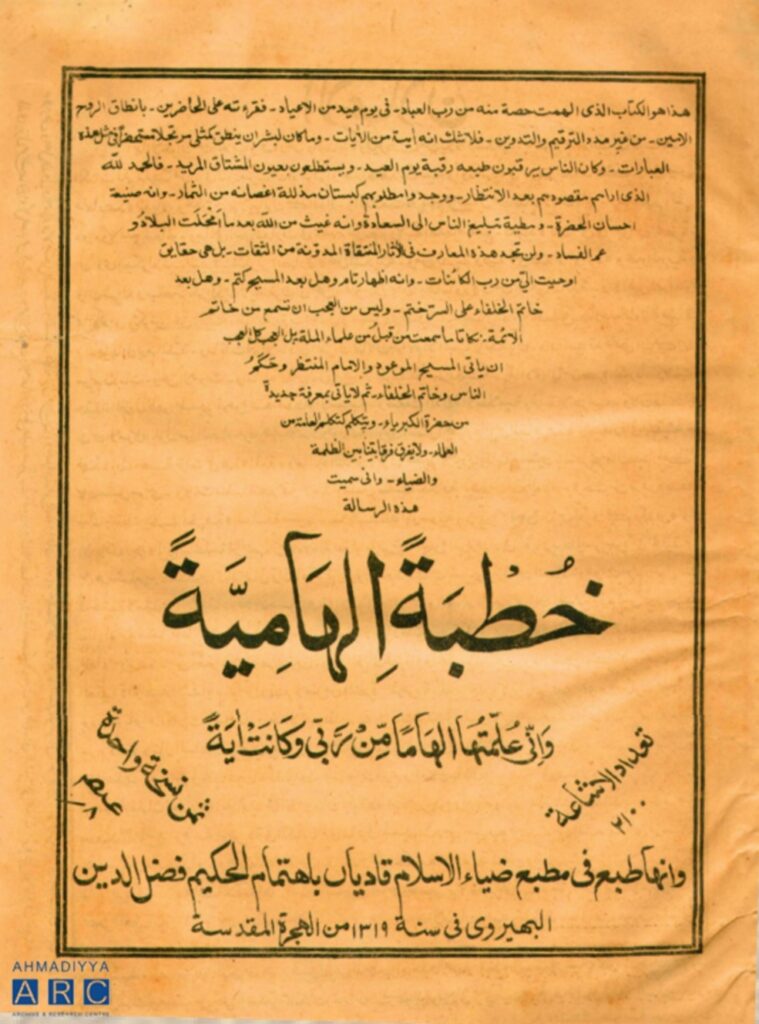 هذا هو الكتاب الذى الهمت حصة منه من رب العباد - فى يوم عيد من الاعياد - فقرءته على الحاضرين - بانطاق الروح
الامين - من غير مدد الترقيم والتدوين - فلاشك انه أية من الأيات - وماكان لبشر ان ينطق كمثلى مرتجلا مستحضراً فى مثل هذه
العبارات - وكان الناس يرقبون طبعه رقبة يوم العيد - ويستطلعون بعيون المشتاق المريد - فالحمد لله
الذى اراهم مقصودهم بعد الانتظار - ووجدوا مطلوبهم كبستان مذللة اغصانه من الثمار - وانه صنيعة
احسان الحضرة - ومطية تبليغ الناس الى السعادة وانه غيث من الله بعد ما امحلت البلاد و
عم الفساد - ولن تجد هذه المعارف فى الأثار المنتقاة المدونة من الثقات - بل هى حقايق
اوحيت الىّ من رب الكائنات - وانه اظهار تام وهل بعد المسيح كتم - وهل بعد
خاتم الخلفاء على السرّ ختم - وليس من العجب ان تسمع من خاتم
الائمة - نكاتا ما سمعت من قبل من علماء الملة بل العجب كل العجب
ان ياتى المسيح الموعود والامام المنتظر وحكم
الناس وخاتم الخلفاء - ثم لاياتى بمعرفة جديدة
من حضرة الكبرياء - ويتكلم كتكلم العامة من
العلماء - ولايفرق فرقا بينا بين الظلمة
والضياء - وانى سميت
هذه الرسالة
خُطْبَةً اِلهَامِيَّةً
وَاِنّى عُلّمتُها الهَامًا مِّنْ رَّبّى وَكَانَتْ اٰيَةً
تعداد الاشاعة
٢١٠٠
ثمن نسخة واحدة
وانها طبع فى مطبع ضياء الاسلام قاديان باهتمام الحكيم فضل الدين
البهيروى فى سنة ١٣١٩ من الهجرة المقدسة
AHMADIYYA
ARC
ARCHIVE & RESEARCH CENTRE